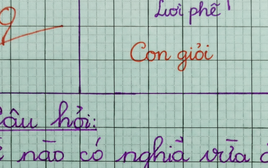 Lười phế
Con giỏi
Câu hỏi:
nào có nghĩa vừa